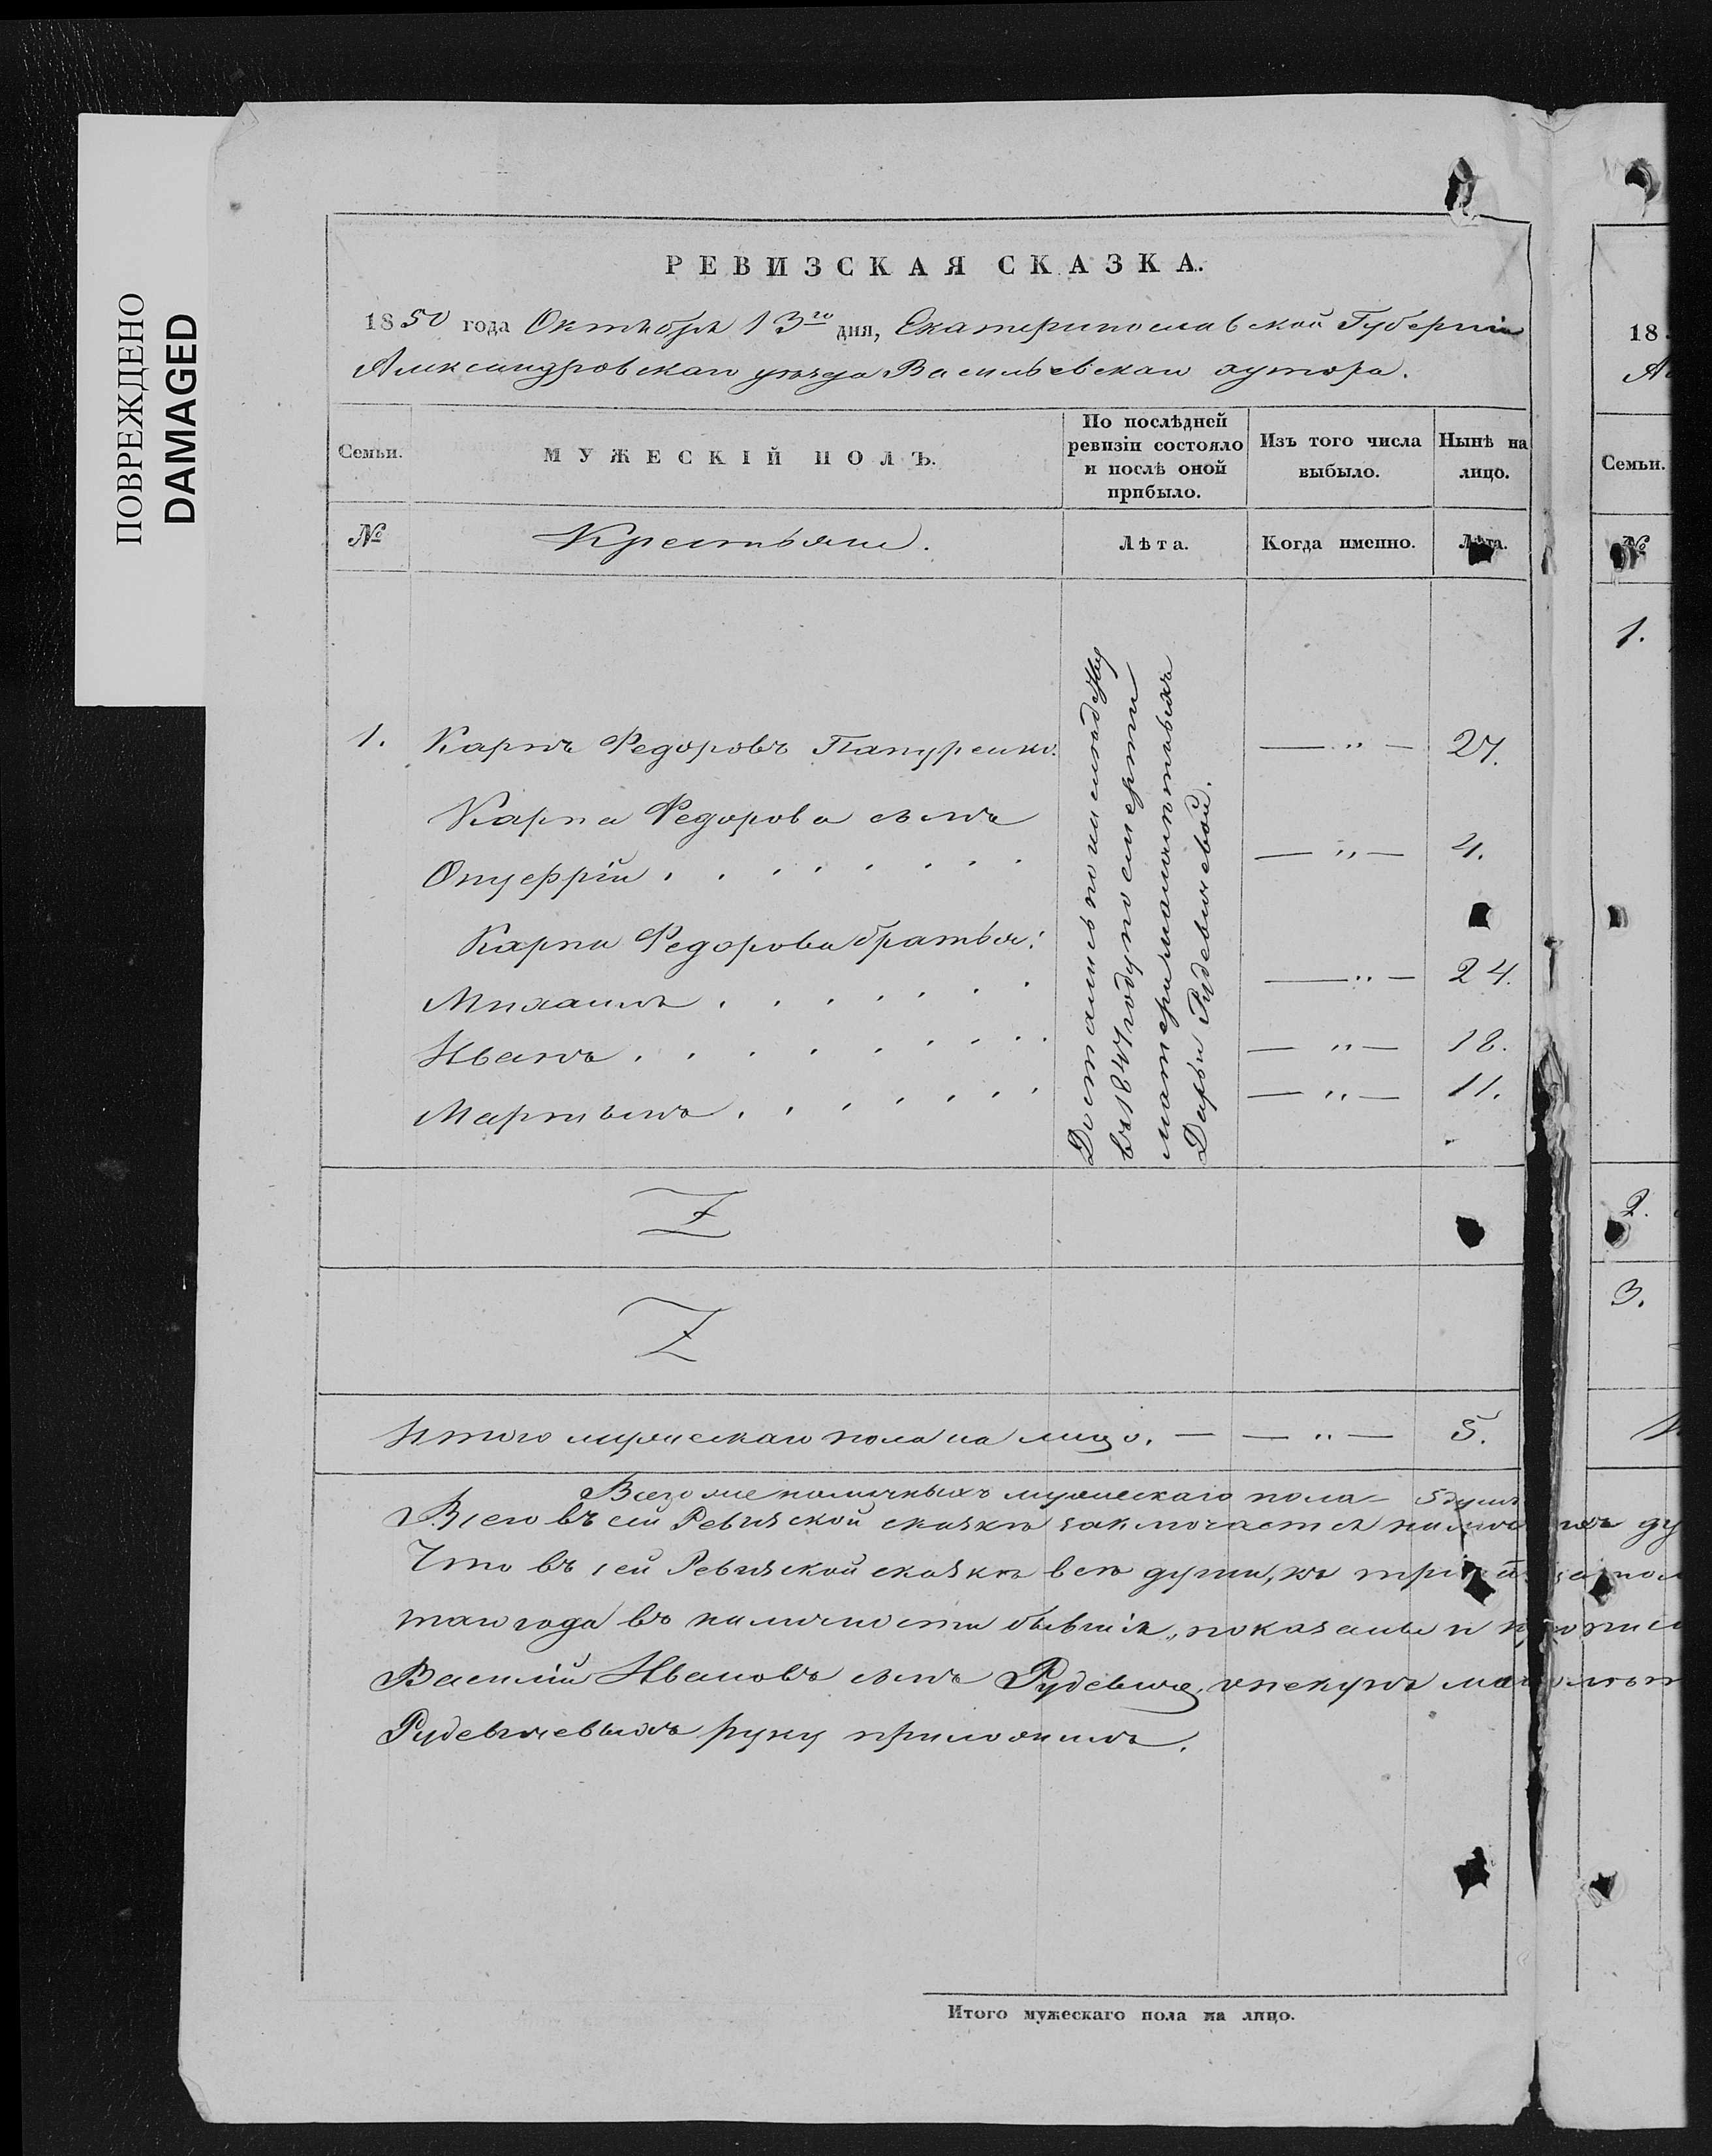 ПОВРЕЖДЕНО
DAMAGED
РЕВИЗСКАЯ СКАЗКА.
1850 года Октября 13го дня, Екатеринославской Губерніи
Александровскаго уѣзда Васильевскаго хутора.
Семьи.
МУЖЕСКІЙ ПОЛЪ.
По послѣдней
ревизіи состояло
и послѣ оной
прибыло.
Изъ того числа
выбыло.
Нынѣ на
лицо.
№
Крестьяне.
Лѣта.
Когда именно.
Лѣта.
1. Карпъ Федоровъ Папуренко. — " — 27.
Карпа Федорова сынъ
Онуфрій . . . . . . . — " — 4.
Карпа Федорова братья:
Михаилъ . . . . . . . — " — 24.
Иванъ . . . . . . . . . — " — 18.
Мартынъ . . . . . . . — " — 11.
Достались по наслѣдству
въ 1847 году по смерти
матери малолѣтныхъ
Дарьи Рудевичевой.
Z
Z
Итого мужескаго пола на лицо. — — " — 5.
Всего же наличныхъ мужескаго пола 5 душъ
Всего въ сей Ревизской сказкѣ заключается
Что въ сей Ревизской сказкѣ всѣ души, къ
таго года въ наличности бывшія, показаны и
Василій Ивановъ сынъ Рудевичъ, опекунъ
Рудевичевыхъ руку приложилъ.
Итого мужескаго пола на лицо.
18
Семьи.
№
1.
2.
3.